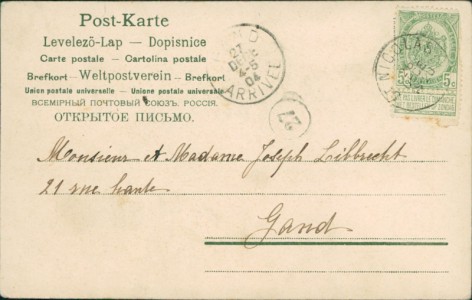 Post-Karte
Levelezö-Lap — Dopisnice
Carte postale — Cartolina postale
Brefkort — Weltpostverein — Brefkort
Union postale universelle — Unione postale universale
ВСЕМІРНЫЙ ПОЧТОВЫЙ СОЮЗЪ. РОССІЯ.
ОТКРЫТОЕ ПИСЬМО.
27
DEC
4-5
04
ARRIVEE
ST NICOLAS
5 5c
27
Monsieur et Madame Joseph Libbrecht
21 rue haute
Gand